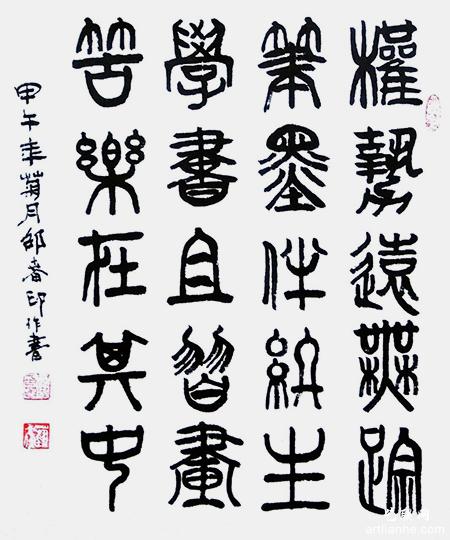 權勢遠無踪
筆墨伴終生
學書且習畫
苦樂在其中
甲午年菊月邵春印作書
artlianhe.com